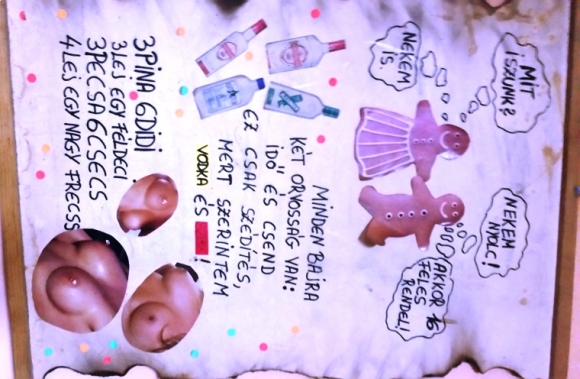 MIT
ISZUNK?
NEKEM
IS.
NEKEM
NYOLC!
AKKOR 16
FELES
RENDEL!
MINDEN BAJRA
KÉT ORVOSSÁG VAN:
IDŐ ÉS CSEND
EZ CSAK SZÉDÍTÉS,
MERT SZERINTEM
VODKA ÉS
3 PINA 6 DIDI
3 LEJ EGY FÉLDECI
3 PECCSA 6 CSECS
4 LEJ EGY NAGY FRECSS